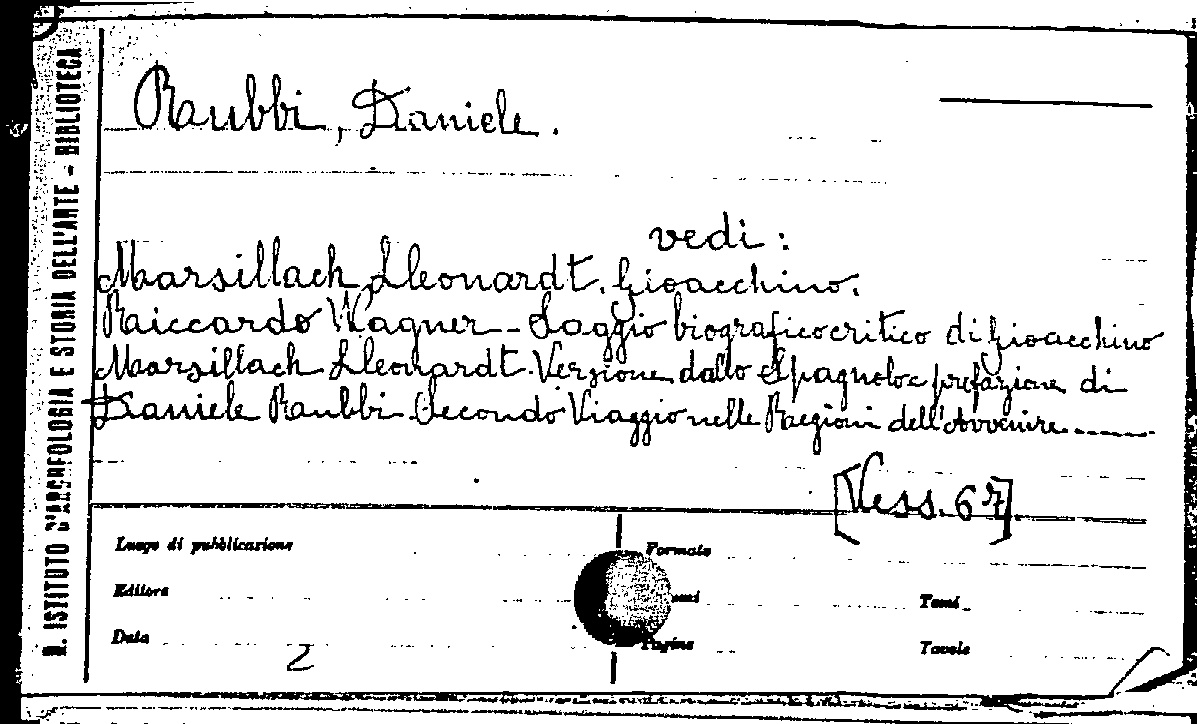 R. ISTITUTO D'ARCHEOLOGIA E STORIA DELL'ARTE - BIBLIOTECA
Raubbi, Daniele.
vedi:
Marsillach Lleonardt. Gioacchino.
Riccardo Wagner - Saggio biografico critico di Gioacchino
Marsillach Lleonardt. Versione dallo Spagnolo e prefazione di
Daniele Raubbi. Secondo Viaggio nelle Regioni dell'Avvenire
[Vess. 67]
Luogo di pubblicazione
Formato
Editore
Tomi
Data
Pagine
Tavole
2